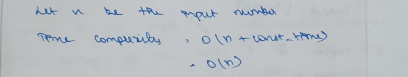 Let n be the input number
Time complexity = O(n + const_time)
= O(n)